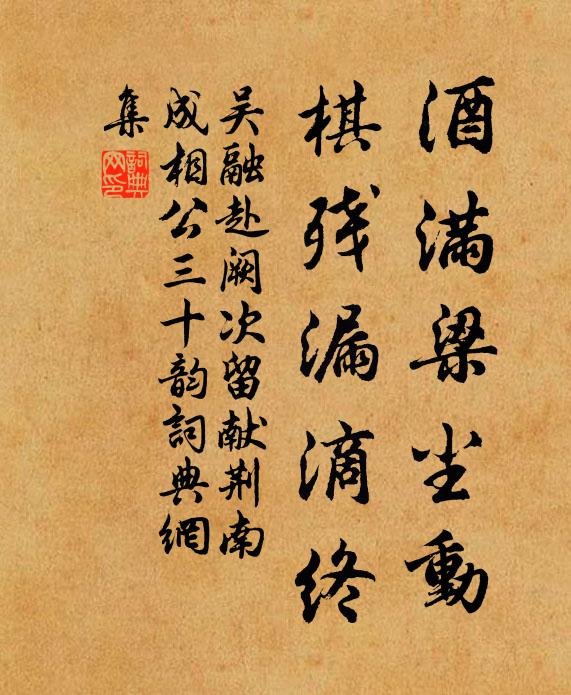 酒满梁尘動
棋残漏滴终
吴融赴阙次留献荆南
成相公三十韵詞典網
集
詞典
网印